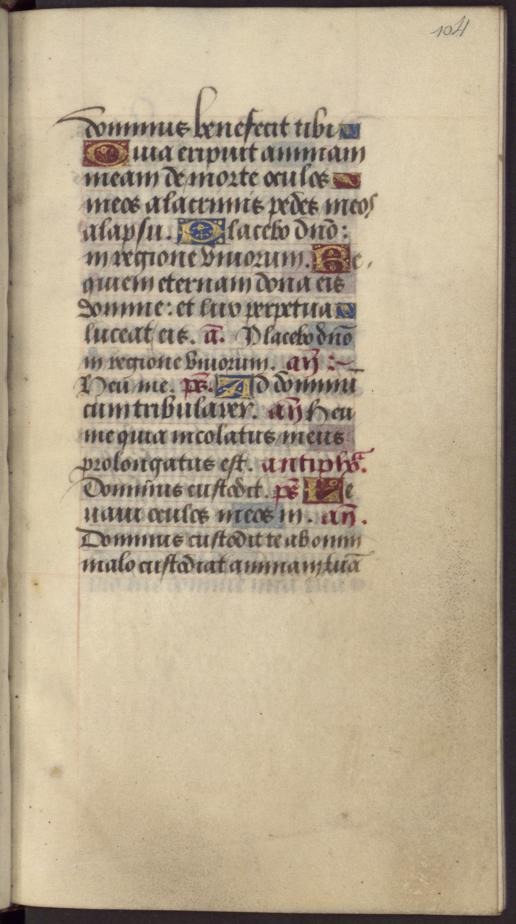 104
dominus benefecit tibi
Quia eripuit animam
meam de morte oculos
meos a lacrimis pedes meos
a lapsu. Placebo dño:
in regione viuorum. Re
quiem eternam dona eis
domine: et lux perpetua
luceat eis. a. Placebo dño
in regione viuorum. añ
Heu me. ps. Ad dominũ
cum tribularer. añ Heu
me quia incolatus meus
prolongatus est. antiphª.
Dominus custodit. ps Le
uaui oculos meos in. añ.
Dominus custodit te ab omni
malo custodiat animam tuã